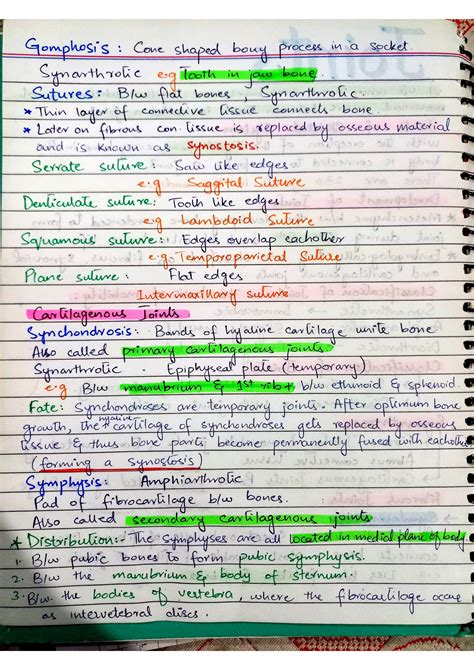 Gomphosis : Cone shaped bony process in a socket.
Synarthrotic e.g Tooth in jaw bone.
Sutures : B/w flat bones, Synarthrotic.
* Thin layer of connective tissue connects bone.
* Later on fibrous con. tissue is replaced by osseous material
and is known as synostosis.
Serrate suture : Saw like edges
e.g Saggital Suture
Denticulate suture : Tooth like edges
e.g Lambdoid Suture
Squamous suture : Edges overlap eachother
e.g. Temporoparietal Suture
Plane suture : Flat edges
Intermaxillary suture
Cartilagenous Joints
Synchondrosis : Bands of hyaline cartilage unite bone
Also called primary cartilagenous joints
Synarthrotic . Epiphyseal plate (temporary)
e.g B/w manubrium & 1st rib & b/w ethmoid & sphenoid.
Fate : Synchondroses are temporary joints. After optimum bone
growth, the hyaline cartilage of synchondroses gets replaced by osseous
tissue & thus bone parts become permanently fused with eachother
(forming a synostosis)
Symphysis : Amphiarthrotic
Pad of fibrocartilage b/w bones.
Also called secondary cartilagenous joints
* Distribution :- The symphyses are all located in medial plane of body
1. B/w pubic bones to form pubic symphysis.
2. B/w the manubrium & body of sternum.
3. B/w. the bodies of vertebra, where the fibrocartilage occurs
as intervetebral discs.